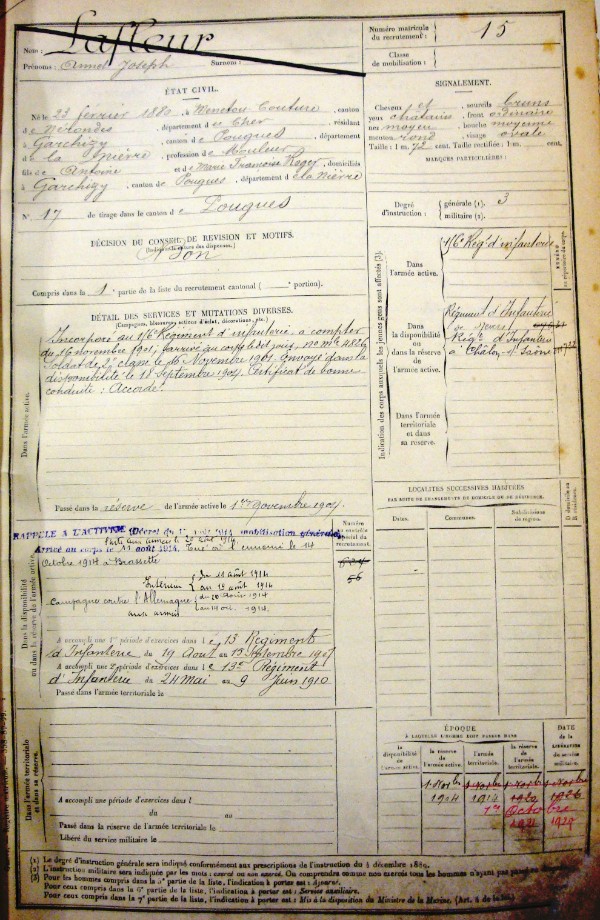 Nom : Lafleur
Prénoms : Joseph Surnom :
Numéro matricule du recrutement : 15
Classe de mobilisation :
ÉTAT CIVIL.
Né le 23 février 1880, à Menetou Couture, canton
de Nérondes, département du Cher, résidant
à Garchizy, canton de Pougues, département
de la Nièvre, profession de Mouleur
fils de Antoine et de Marie Françoise Roger, domiciliés
à Garchizy, canton de Pougues, département de la Nièvre
N° 17 de tirage dans le canton de Pougues
SIGNALEMENT.
Cheveux et sourcils bruns
yeux chatains, front ordinaire
nez moyen, bouche moyenne
menton rond, visage ovale
Taille : 1 m. 72 cent. Taille rectifiée : 1 m. cent.
MARQUES PARTICULIÈRES :
Degré d'instruction : générale (1). 3
militaire (2).
DÉCISION DU CONSEIL DE REVISION ET MOTIFS.
Bon
Compris dans la 1e partie de la liste du recrutement cantonal ( portion).
DÉTAIL DES SERVICES ET MUTATIONS DIVERSES.
(Campagnes, blessures, actions d'éclat, décorations, etc.)
Dans l'armée active.
Incorporé au Régiment d'infanterie à compter
du 16 novembre 1901, arrivé au corps le dit jour, no mle 4826
Soldat de 2e classe le 16 Novembre 1901. Envoyé dans la
disponibilité le 18 Septembre 1904. Certificat de bonne
conduite : Accordé.
Passé dans la réserve de l'armée active le 1er Novembre 1904.
Indication des corps auxquels les jeunes gens sont affectés (3).
Dans l'armée active.
Régt d'infanterie
Dans la disponibilité ou dans la réserve de l'armée active.
Régiment d'Infanterie
de Nevers
Régt d'Infanterie
à Châlon-s/-Saône
Dans l'armée territoriale et dans sa réserve.
LOCALITÉS SUCCESSIVES HABITÉES
PAR SUITE DE CHANGEMENTS DE DOMICILE OU DE RÉSIDENCE.
Dates. Communes. Subdivisions de région.
Dans la disponibilité ou dans la réserve de l'armée active.
RAPPELÉ A L'ACTIVITÉ Décret du 1914 mobilisation générale
Arrivé au corps le 11 août 1914. Tué à l'ennemi le 14
Octobre 1914 à Brassette
Numéro au contrôle spécial du recrutement.
56
Intérieur du 11 août 1914
au 19 août 1914
Campagne contre l'Allemagne
aux armées du 20 août 1914
au 14 oct. 1914.
A accompli une 1re période d'exercices dans le 13 Régiment
d'Infanterie du 19 Aout au 15 Septembre 1907
A accompli une 2e période d'exercices dans le 13e Régiment
d'Infanterie du 24 Mai au 9 Juin 1910
Passé dans l'armée territoriale le
Dans l'armée territoriale et dans sa réserve.
A accompli une période d'exercices dans l
du au
Passé dans la réserve de l'armée territoriale le
Libéré du service militaire le
ÉPOQUE
À LAQUELLE L'HOMME DOIT PASSER DANS
la disponibilité de l'armée active. la réserve de l'armée active. l'armée territoriale. la réserve de l'armée territoriale.
DATE de la LIBÉRATION du service militaire.
1 Novbre 1904
1 Novbre 1914
1 Novbre 1920
1 Novbre 1926
1er Octobre
1921
(1) Le degré d'instruction générale sera indiqué conformément aux prescriptions de l'instruction du 4 décembre 1889.
(2) L'instruction militaire sera indiquée par les mots : exercé ou non exercé. On comprendra comme non exercés tous les hommes n'ayant pas passé
(3) Pour les hommes compris dans la 5e partie de la liste, l'indication à porter est : Ajourné.
Pour ceux compris dans la 6e partie de la liste, l'indication à porter est : Service auxiliaire.
Pour ceux compris dans la 7e partie de la liste, l'indication à porter est : Mis à la disposition du Ministre de la Marine. (Art. 4 de la loi.)